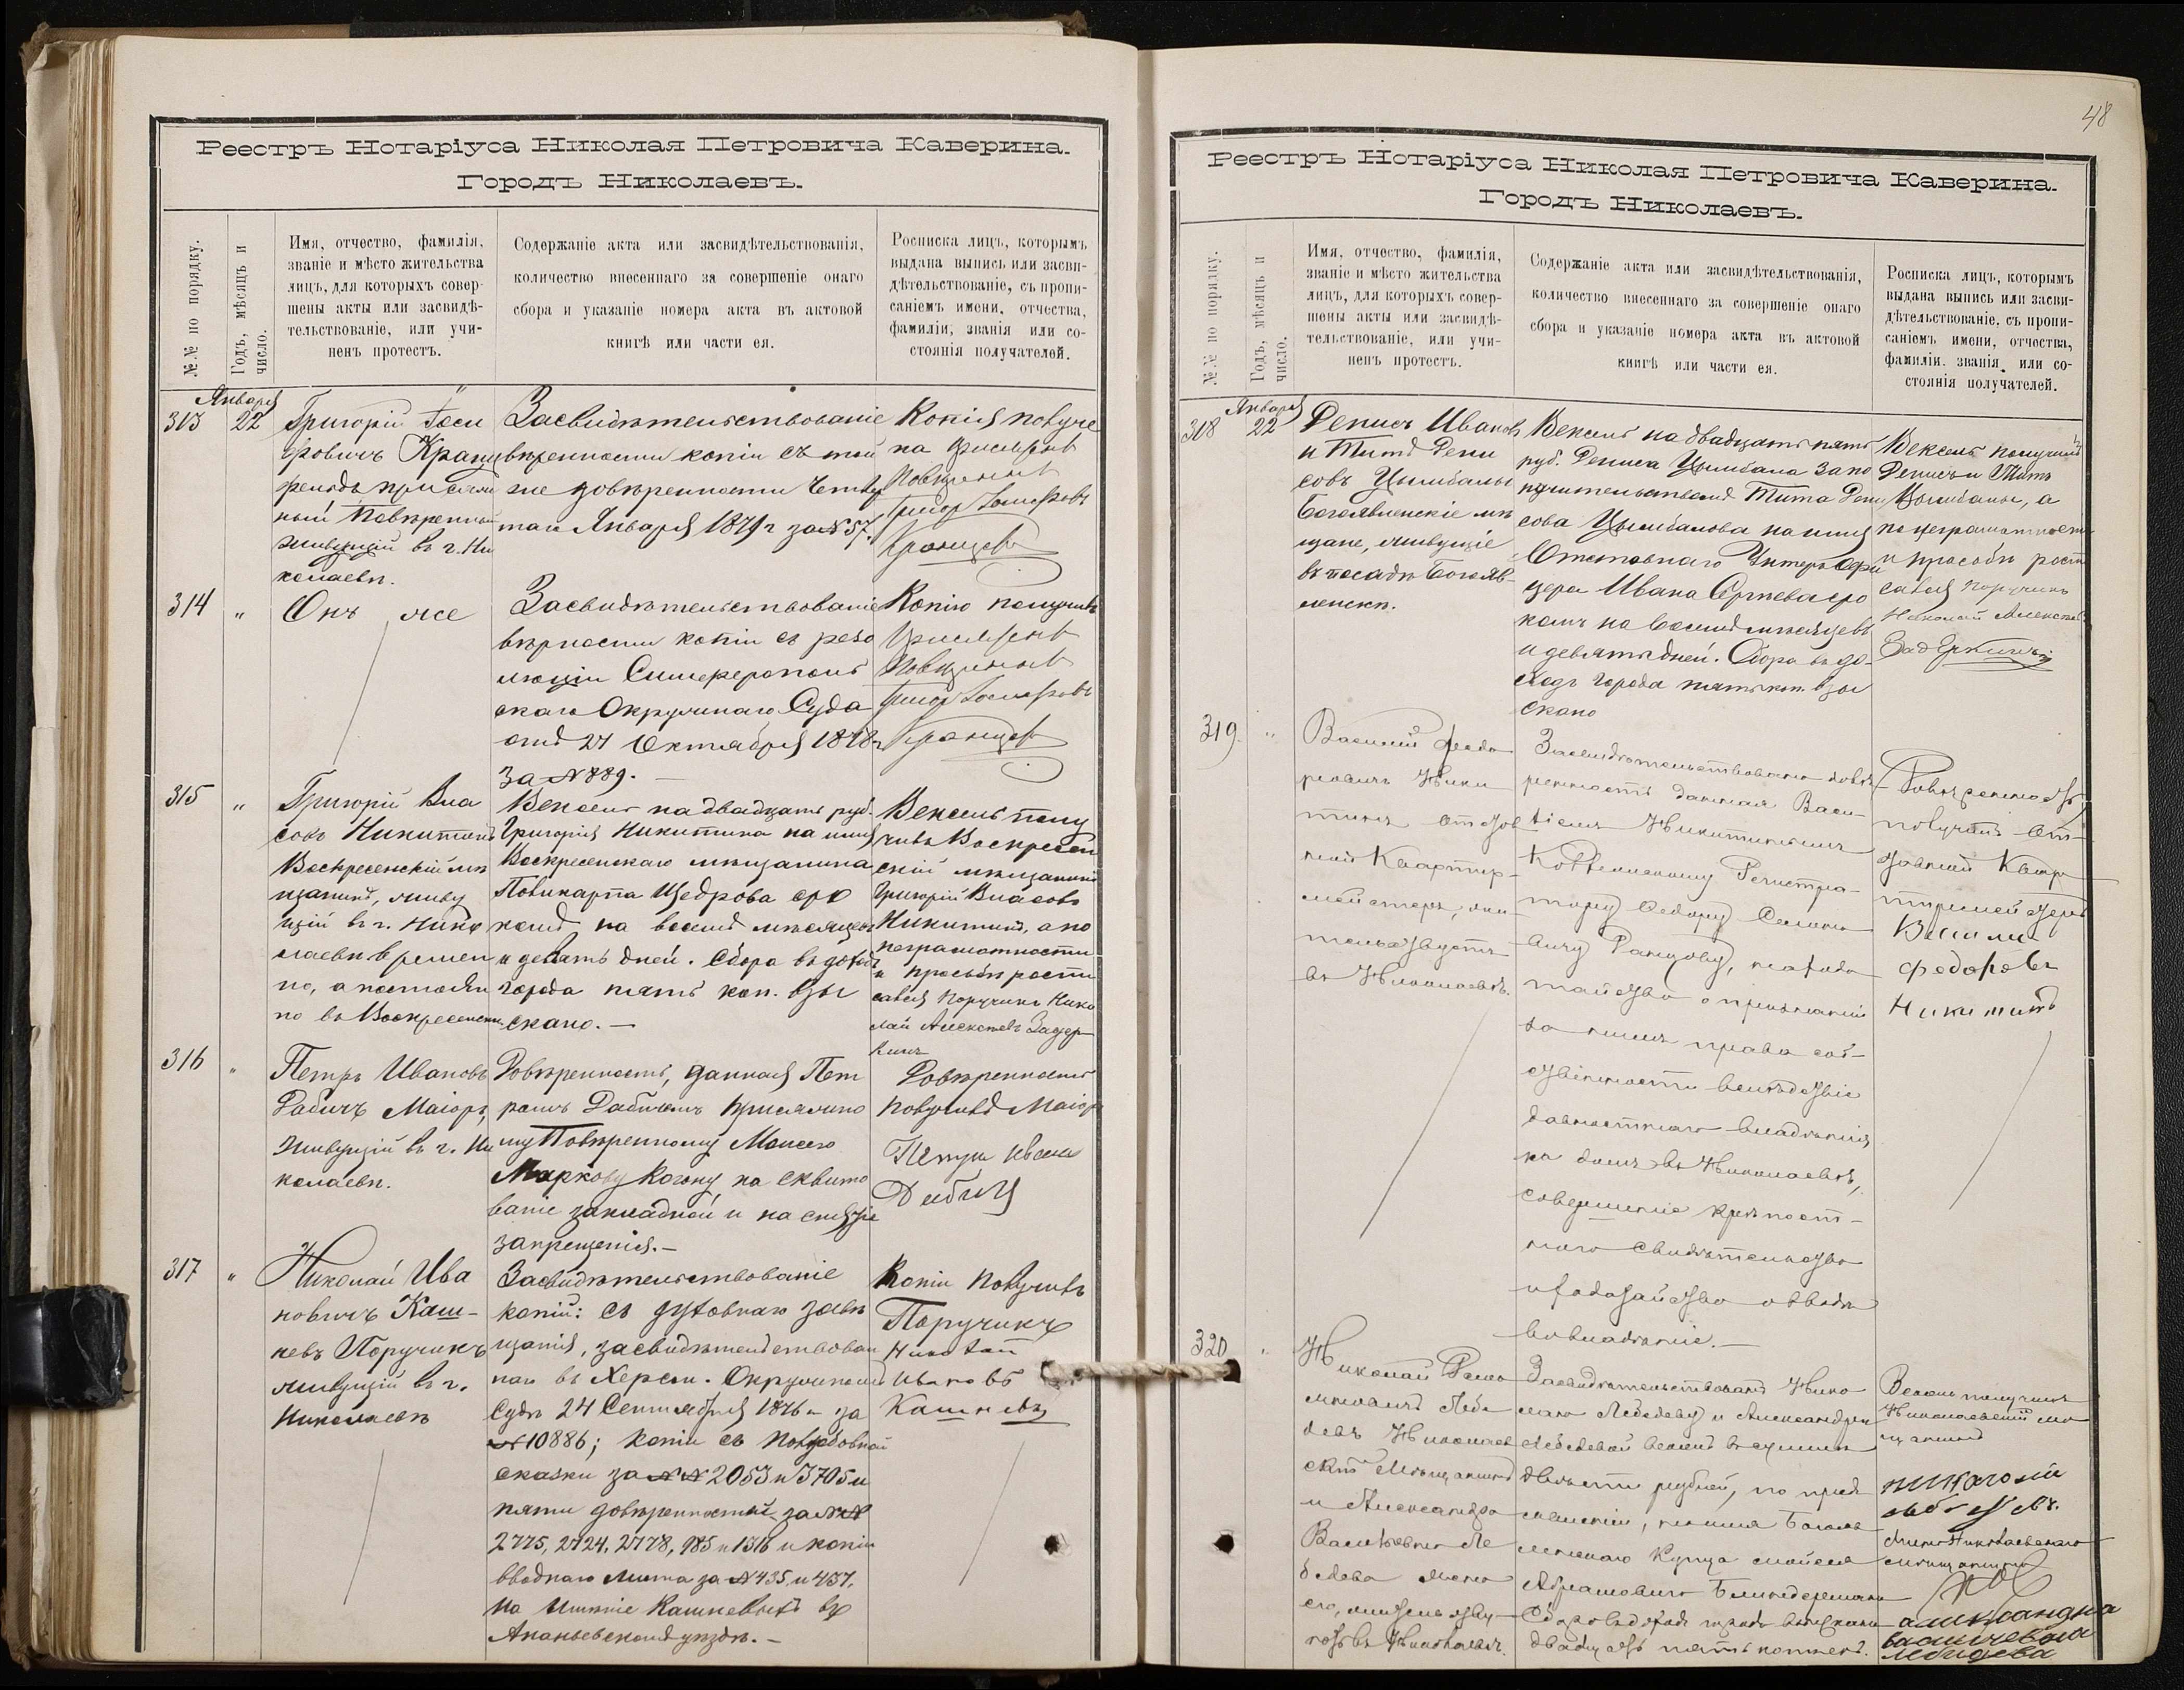 Реестръ Нотаріуса Николая Петровича Каверина.
Городъ Николаевъ.
№.№ по порядку.
Годъ, мѣсяцъ и
число.
Имя, отчество, фамилія,
званіе и мѣсто жительства
лицъ, для которыхъ совер-
шены акты или засвидѣ-
тельствованіе, или учи-
ненъ протестъ.
Содержаніе акта или засвидѣтельствованія,
количество внесеннаго за совершеніе онаго
сбора и указаніе номера акта въ актовой
книгѣ или части ея.
Росписка лицъ, которымъ
выдана выпись или засви-
дѣтельствованіе, съ пропи-
саніемъ имени, отчества,
фамиліи, званія или со-
стоянія получателей.
Января
313
22
Григорій Іоси
фовичъ Кранц
фельдъ присяж
ный Повѣренный
живущій въ г. Ни
колаевѣ.
Засвидѣтельствованіе
вѣренности копіи съ той
же довѣренности Четвер
таго Января 1879 г за № 57.
Копія получе
на
Повѣренный
314
"
Онъ же
Засвидѣтельствованіе
вѣрности копіи съ резо
люціи Симферополь
скаго Окружнаго Суда
отъ 27 Октября 1878 г
за № 889.
Копію получилъ
315
"
Григорій Вла
совъ Никитинъ
Воскресенскій мѣ
щанинъ, живу
щій въ г. Нико
лаевѣ времен
но, а постоян
но въ Воскресенскѣ
Вексель на двадцать руб.
Григорія Никитина на имя
Воскресенскаго мѣщанина
Поликарпа Щедрова сро
комъ на восемь мѣсяцевъ
и девять дней. Сбора въ доходъ
города пять коп. взы
скано. —
Вексель полу
чилъ Воскресен
скій мѣщанинъ
Григорій Власовъ
Никитинъ, а по
неграмотности
и просьбѣ роспи
сался Поручикъ Нико
лай Алексѣевъ Задер
кинъ
316
"
Петръ Ивановъ
Дабичъ Маіоръ,
живущій въ г. Ни
колаевѣ.
Довѣренность, данная Пет
ромъ Дабичемъ Присяжно
му Повѣренному Моисею
Маркову Когону на сквито
ваніе закладной и на снятіе
запрещенія. —
Довѣренность
получилъ Маіоръ
Петръ Ивановъ
Дабичъ
317
"
Николай Ива
новичъ Каш-
невъ Поручикъ
живущій въ г.
Николаевѣ
Засвидѣтельствованіе
копій: съ духовнаго завѣ
щанія, засвидѣтельствован
наго въ Херсон. Окружномъ
Судѣ 24 Сентября 1876 г за
№ 10886; копіи съ
сказки за №№ 2053 и 3705 и
пяти довѣренностей за №№
2775, 2724, 2778, 985 и 1316 и копіи
вводнаго листа за № 435 и 437,
на имѣніе Кашневыхъ въ
Ананьевскомъ уѣздѣ. —
Копіи получилъ
Поручикъ
Николай
Ивановъ
Кашневъ
48
Реестръ Нотаріуса Николая Петровича Каверина.
Городъ Николаевъ.
№.№ по порядку.
Годъ, мѣсяцъ и
число.
Имя, отчество, фамилія,
званіе и мѣсто жительства
лицъ, для которыхъ совер-
шены акты или засвидѣ-
тельствованіе, или учи-
ненъ протестъ.
Содержаніе акта или засвидѣтельствованія,
количество внесеннаго за совершеніе онаго
сбора и указаніе номера акта въ актовой
книгѣ или части ея.
Росписка лицъ, которымъ
выдана выпись или засви-
дѣтельствованіе, съ пропи-
саніемъ имени, отчества,
фамиліи, званія или со-
стоянія получателей.
Января
318
22
Денисъ Ивановъ
и Титъ Дени
совъ Цымбалы
Богоявленскіе мѣ
щане, живущіе
въ посадѣ Богояв-
ленскѣ.
Вексель на двадцать пять
руб. Дениса Цымбала за по
ручительствомъ Тита Дени
сова Цымбалова на имя
Отставнаго Унтеръ Офи
цера Ивана Сергѣева сро
комъ на восемь мѣсяцевъ
и девять дней. Сбора въ до-
ходъ города пять коп. взы
скано
Вексель получилъ
Денисъ и Титъ
Цымбалы, а
по неграмотности
и просьбѣ роспи
сался Поручикъ
Николай Алексѣевъ
Задеркинъ
319.
"
Василій Федо
ровичъ Ники
тинъ отстав
ной Квартир-
мейстеръ, жи-
тельствуетъ
въ Николаевѣ.
Засвидѣтельствована довѣ
ренность данная Васи-
ліемъ Никитинымъ
Коллежскому Регистра-
тору Федору Семено
вичу Ранцову, на хода
тайство о признаніи
за нимъ права соб-
ственности вслѣдствіе
давностнаго владѣнія
на домъ въ Николаевѣ,
совершеніе крѣпост-
наго свидѣтельства
и ходатайство о вводѣ
во владѣніе. —
Довѣренность
получилъ От-
ставной Квар
тирмейстеръ
Василий
Федоровъ
Никитинъ
320
"
Николай
Лебе
девъ Николаев
скій Мѣщанинъ
и Александра
Васильевна Ле
бедева жена
его, жительству-
ютъ въ Николаевѣ.
Засвидѣтельствованъ Нико
лаю Лебедеву и Александрѣ
Лебедевой вексель въ суммѣ
двѣсти рублей, по предъ
явленіи, на имя Богояв
ленскаго Купца Мойсея
Абрамовича
Сбора въ доходъ города взыскано
двадцать пять копѣекъ.
Вексель получилъ
Николаевскій мѣ
щанинъ
николай
лебедевъ.
Жена Николаевскаго
мѣщанина
александра
васильевна
лебедева